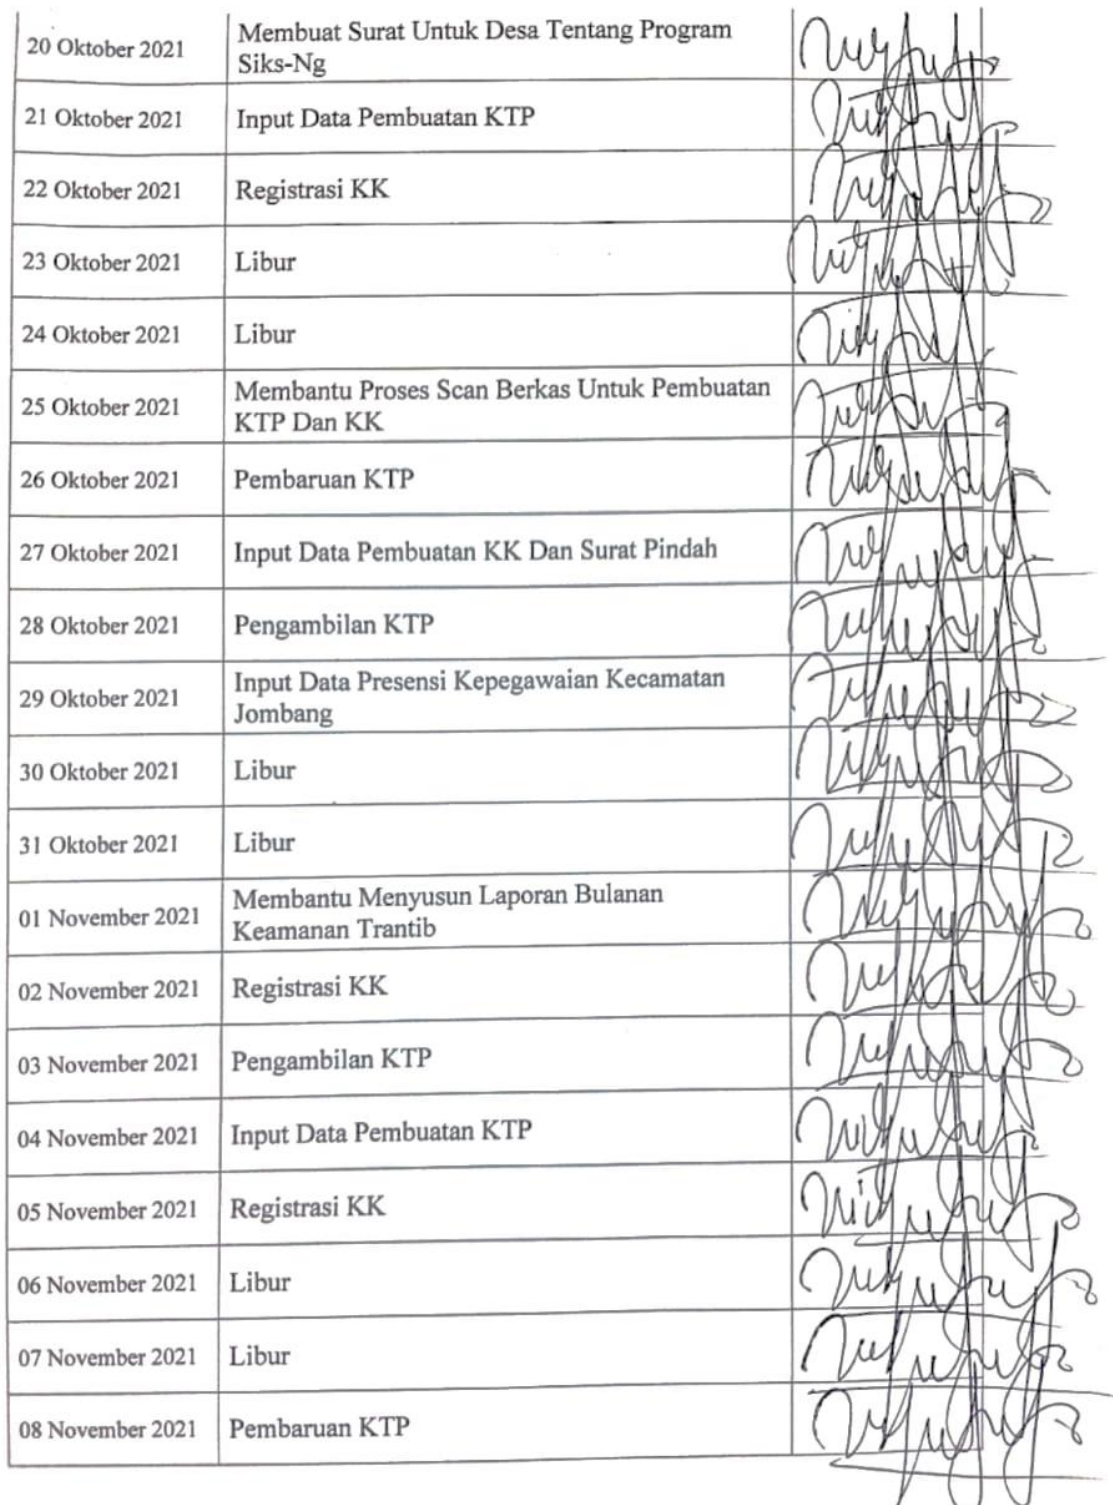 20 Oktober 2021
Membuat Surat Untuk Desa Tentang Program
Siks-Ng
21 Oktober 2021
Input Data Pembuatan KTP
22 Oktober 2021
Registrasi KK
23 Oktober 2021
Libur
24 Oktober 2021
Libur
25 Oktober 2021
Membantu Proses Scan Berkas Untuk Pembuatan
KTP Dan KK
26 Oktober 2021
Pembaruan KTP
27 Oktober 2021
Input Data Pembuatan KK Dan Surat Pindah
28 Oktober 2021
Pengambilan KTP
29 Oktober 2021
Input Data Presensi Kepegawaian Kecamatan
Jombang
30 Oktober 2021
Libur
31 Oktober 2021
Libur
01 November 2021
Membantu Menyusun Laporan Bulanan
Keamanan Trantib
02 November 2021
Registrasi KK
03 November 2021
Pengambilan KTP
04 November 2021
Input Data Pembuatan KTP
05 November 2021
Registrasi KK
06 November 2021
Libur
07 November 2021
Libur
08 November 2021
Pembaruan KTP